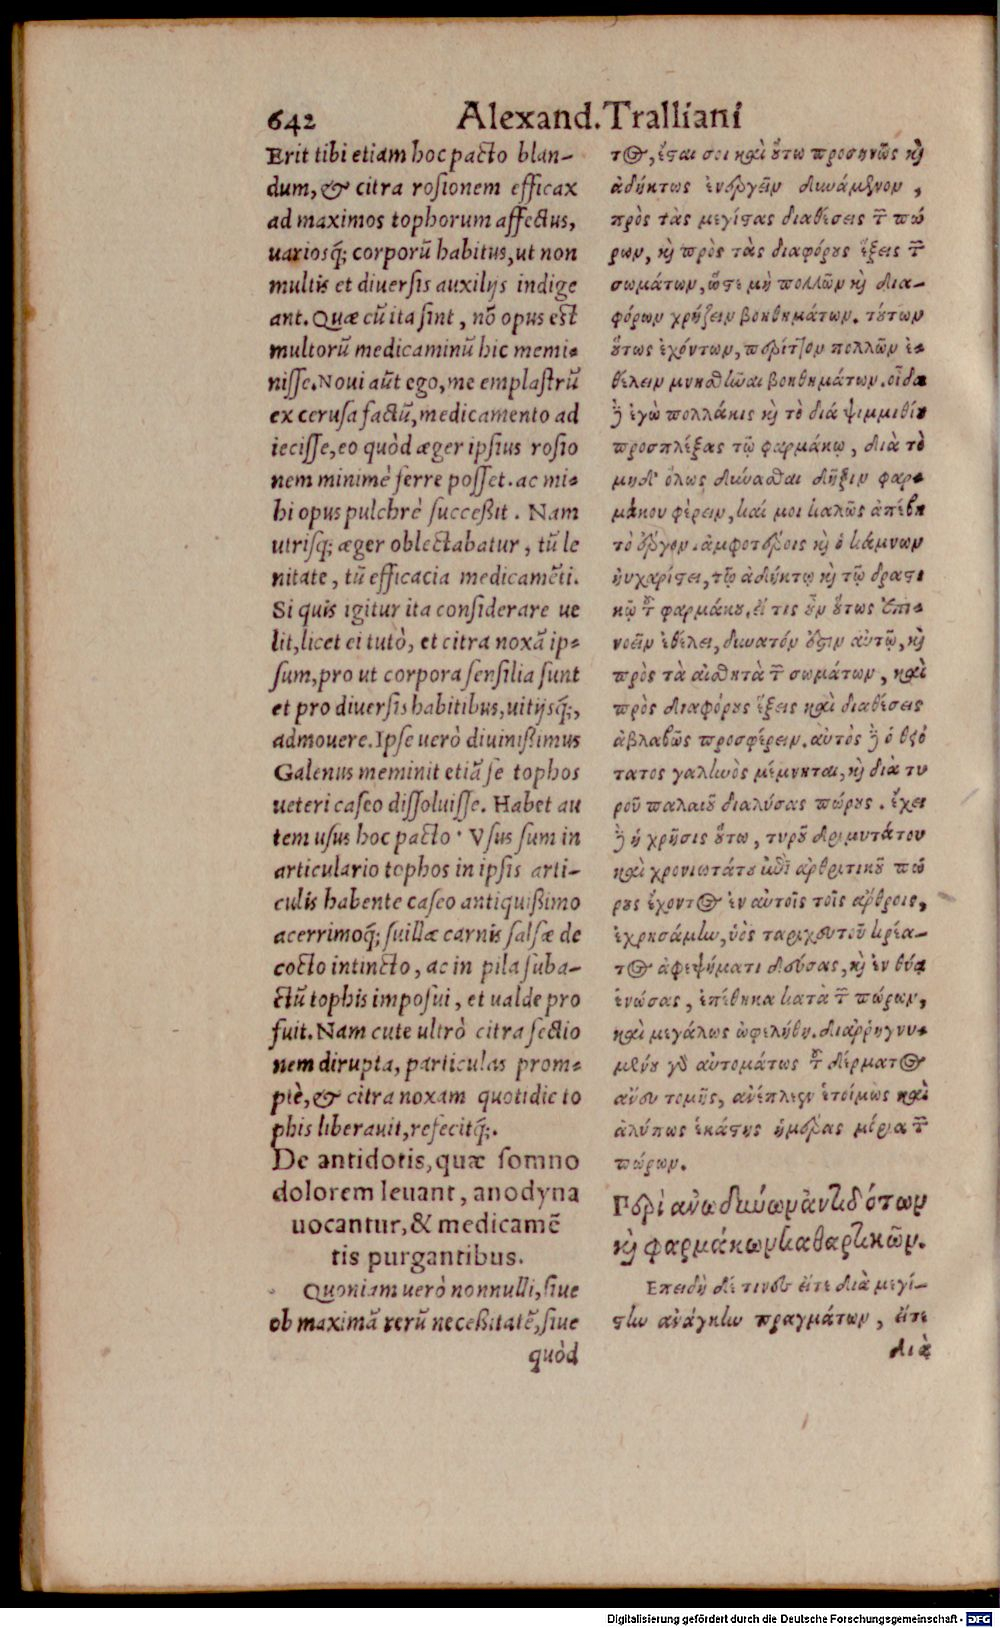 642 Alexand. Tralliani
Erit tibi etiam hoc pacto blan-
dum, & citra rosionem efficax
ad maximos tophorum affectus,
uariosq́; corporũ habitus, ut non
multis et diuersis auxilijs indige
ant. Quæ cũ ita sint, nõ opus est
multorũ medicaminũ hic memi-
nisse. Noui aũt ego, me emplastrũ
ex cerusa factũ, medicamento ad
iecisse, eo quòd æger ipsius rosio
nem minimè ferre posset. ac mi-
hi opus pulchrè successit. Nam
utrisq́; æger oblectabatur, tũ le
nitate, tũ efficacia medicamẽti.
Si quis igitur ita considerare ue
lit, licet ei tutò, et citra noxã ip-
sum, pro ut corpora sensilia sunt
et pro diuersis habitibus, uitijsq́;,
admouere. Ipse uerò diuinissimus
Galenus meminit etiã se tophos
ueteri caseo dissoluisse. Habet au
tem usus hoc pacto. Vsus sum in
articulario tophos in ipsis arti-
culis habente caseo antiquissimo
acerrimoq́; suillæ carnis salsæ de
cocto intincto, ac in pila suba-
ctũ tophis imposui, et ualde pro
fuit. Nam cute ultrò citra sectio
nem dirupta, particulas prom-
ptè, & citra noxam quotidie to
phis liberauit, refecitq́;.
De antidotis, quæ somno
dolorem leuant, anodyna
uocantur, & medicamẽ
tis purgantibus.
Quoniam uerò nonnulli, siue
ob maximã rerũ necessitatẽ, siue
quòd
τος, ἔσαι σοι καὶ οὕτω προσηνῶς καὶ
ἀδήκτως ἐνεργεῖν δυνάμενον,
πρὸς τὰς μεγίστας διαθέσεις τῶν πώ
ρων, καὶ πρὸς τὰς διαφόρους ἕξεις τῶν
σωμάτων, ὥστε μὴ πολλῶν καὶ δια-
φόρων χρῄζειν βοηθημάτων. τούτων
οὕτως ἐχόντων, περίττον πολλῶν ἐ-
θέλειν μνησθῆναι βοηθημάτων. οἶδα
δὲ ἐγὼ πολλάκις καὶ τὸ διά ψιμμιθίου
προσπλέξας τῷ φαρμάκῳ, διὰ τὸ
μηδ' ὅλως δύνασθαι δῆξιν φαρ-
μάκου φέρειν, καί μοι καλῶς ἀπέβη
τὸ ἔργον. ἀμφοτέροις καὶ ὁ κάμνων
ηὐχαρίστει, τῷ ἀδήκτῳ καὶ τῷ δραστι
κῷ τοῦ φαρμάκου. εἴ τις οὖν οὕτως ἐπι-
νοεῖν ἐθέλει, δυνατόν ἐστιν αὐτῷ, καὶ
πρὸς τὰ αἰσθητὰ τῶν σωμάτων, καὶ
πρὸς διαφόρους ἕξεις καὶ διαθέσεις
ἀβλαβῶς προσφέρειν. αὐτὸς δὲ ὁ θειό
τατος γαληνὸς μέμνηται, καὶ διὰ τυ
ροῦ παλαιοῦ διαλύσας πώρους. ἔχει
δὲ ἡ χρῆσις οὕτω, τυροῦ δριμυτάτου
καὶ χρονιωτάτου ἐπὶ ἀρθριτικοῦ πώ
ρους ἔχοντος ἐν αὐτοῖς τοῖς ἄρθροις,
ἐχρησάμην, ὑὸς ταριχευτοῦ κρέα-
τος ἀφεψήματι δεύσας, καὶ ἐν θύα
ἑνώσας, ἐπέθηκα κατὰ τῶν πώρων,
καὶ μεγάλως ὠφελήθη. διαῤῥηγνυ-
μένου γὰρ αὐτομάτως τοῦ δέρματος
ἄνευ τομῆς, ἀνέπλευν ἑτοίμως καὶ
ἀλύπως ἑκάστης ἡμέρας μόρια τῶν
πώρων.
Περὶ ἀνωδύνων ἀντιδότων
καὶ φαρμάκων καθαρτικῶν.
Επειδὴ δέ τινες εἴτε διὰ μεγί-
στην ἀνάγκην πραγμάτων, εἴτε
διὰ
Digitalisierung gefördert durch die Deutsche Forschungsgemeinschaft - DFG